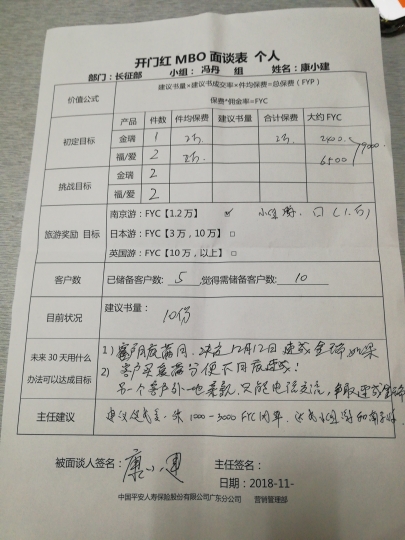 开门红 MBO 面谈表 个人
部门：长征部 小组：冯丹 组 姓名：康小建
价值公式 建议书量×建议书成交率×件均保费=总保费（FYP）
保费*佣金率=FYC
产品 件数 件均保费 建议书量 合计保费 大约 FYC
初定目标 金瑞 1 2万 2万 2400
福/爱 2 2万 6500 9000
挑战目标 金瑞 2
福/爱 2
旅游奖励 目标 南京游：FYC【1.2 万】 ✓
日本游：FYC【3 万，10 万】□
英国游：FYC【10 万，以上】□
客户数 已储备客户数: 5 ,觉得需储备客户数: 10
目前状况 建议书量：
10份
未来 30 天用什么办法可以达成目标
1) 决定12月12日
2) 客户
另一个客户 只能电话交流，争取
主任建议 建议 1000-3000 FYC
被面谈人签名： 康小建 主任签名：
日期：2018-11-
中国平安人寿保险股份有限公司广东分公司 营销管理部